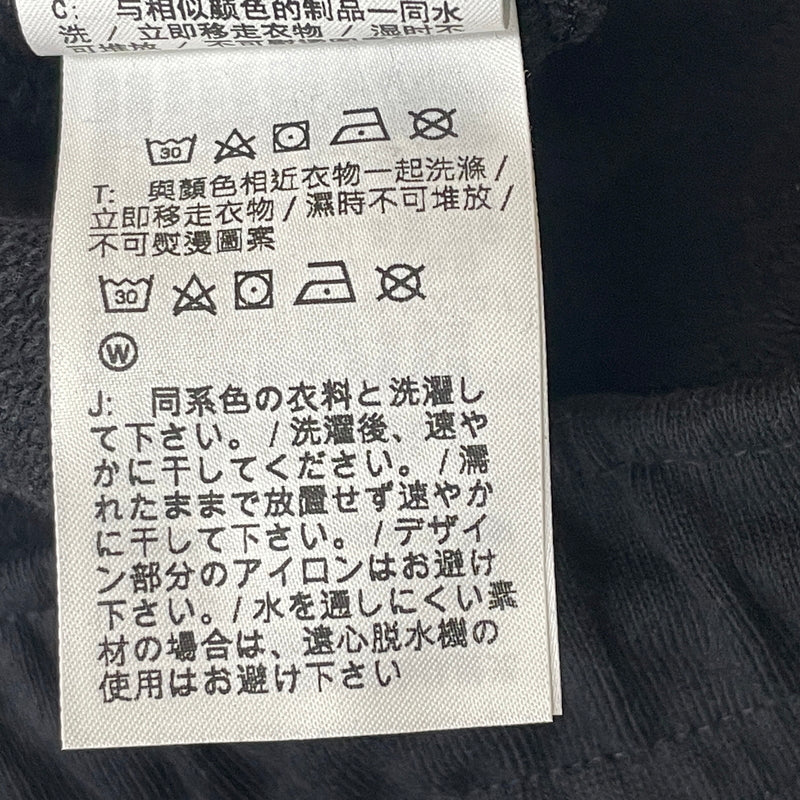 C: 与相似颜色的制品一同水
洗 / 立即移走衣物 / 湿时不
可堆放 / 不可熨烫图案
30
T: 與顏色相近衣物一起洗滌 /
立即移走衣物 / 濕時不可堆放 /
不可熨燙圖案
30
W
J: 同系色の衣料と洗濯し
て下さい。 / 洗濯後、速や
かに干してください。 / 濡
れたままで放置せず速やか
に干して下さい。 / デザイ
ン部分のアイロンはお避け
下さい。 / 水を通しにくい素
材の場合は、遠心脱水機の
使用はお避け下さい